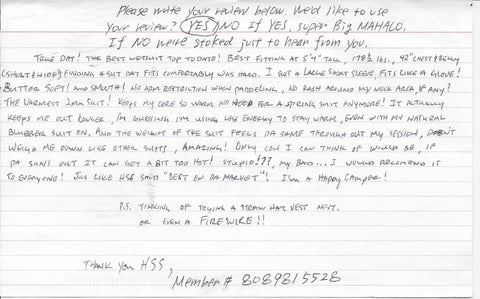 Please write your review below. We'd like to use
your review? YES/NO If YES, super Big MAHALO.
If NO we're stoked just to hear from you.
TRUE DAT! THE BEST WETSUIT TOP TO DATE! BEST FITTING AT 5'4" TALL, 178½ lbs., 42" CHEST & BELLY
(SHORT & WIDE) FINDING A SUIT DAT FITS COMFORTABLY WAS HARD. I GOT A LARGE SHORT SLEEVE, FITS LIKE A GLOVE!
BUTTER SOFT! AND SMOOTH! NO ARM RESTRICTION WHEN PADDELING, NO RASH AROUND MY NECK AREA, IF ANY?
THE WARMEST 2mm SUIT! KEEPS MY CORE SO WARM NO NEED FOR A SPRING SUIT ANYMORE! IT ACTUALLY
KEEPS ME OUT LONGER, I'M GUESSING I'M USING LESS ENERGY TO STAY WARM, EVEN WITH MY NATURAL
BLUBBER SUIT ON. AND THE WEIGHT OF THE SUIT FEELS DA SAME THROUGH OUT MY SESSION, DOESN'T
WEIGH ME DOWN LIKE OTHER SUITS, AMAZING! ONLY CON I CAN THINK OF WOULD BE, IF
DA SUNS OUT IT CAN GET A BIT TOO HOT! STUPID!??, MY BAD... I WOULD RECOMEND IT
TO EVERYONE! JUS LIKE HSS SAID "BEST ON DA MARKET"! I'M A HAPPY CAMPER!
P.S. TINKING OF TRYING A STRAW HAT VEST NEXT.
OR EVEN A FIREWIRE!!
THANK YOU HSS,
MEMBER # 8089815528